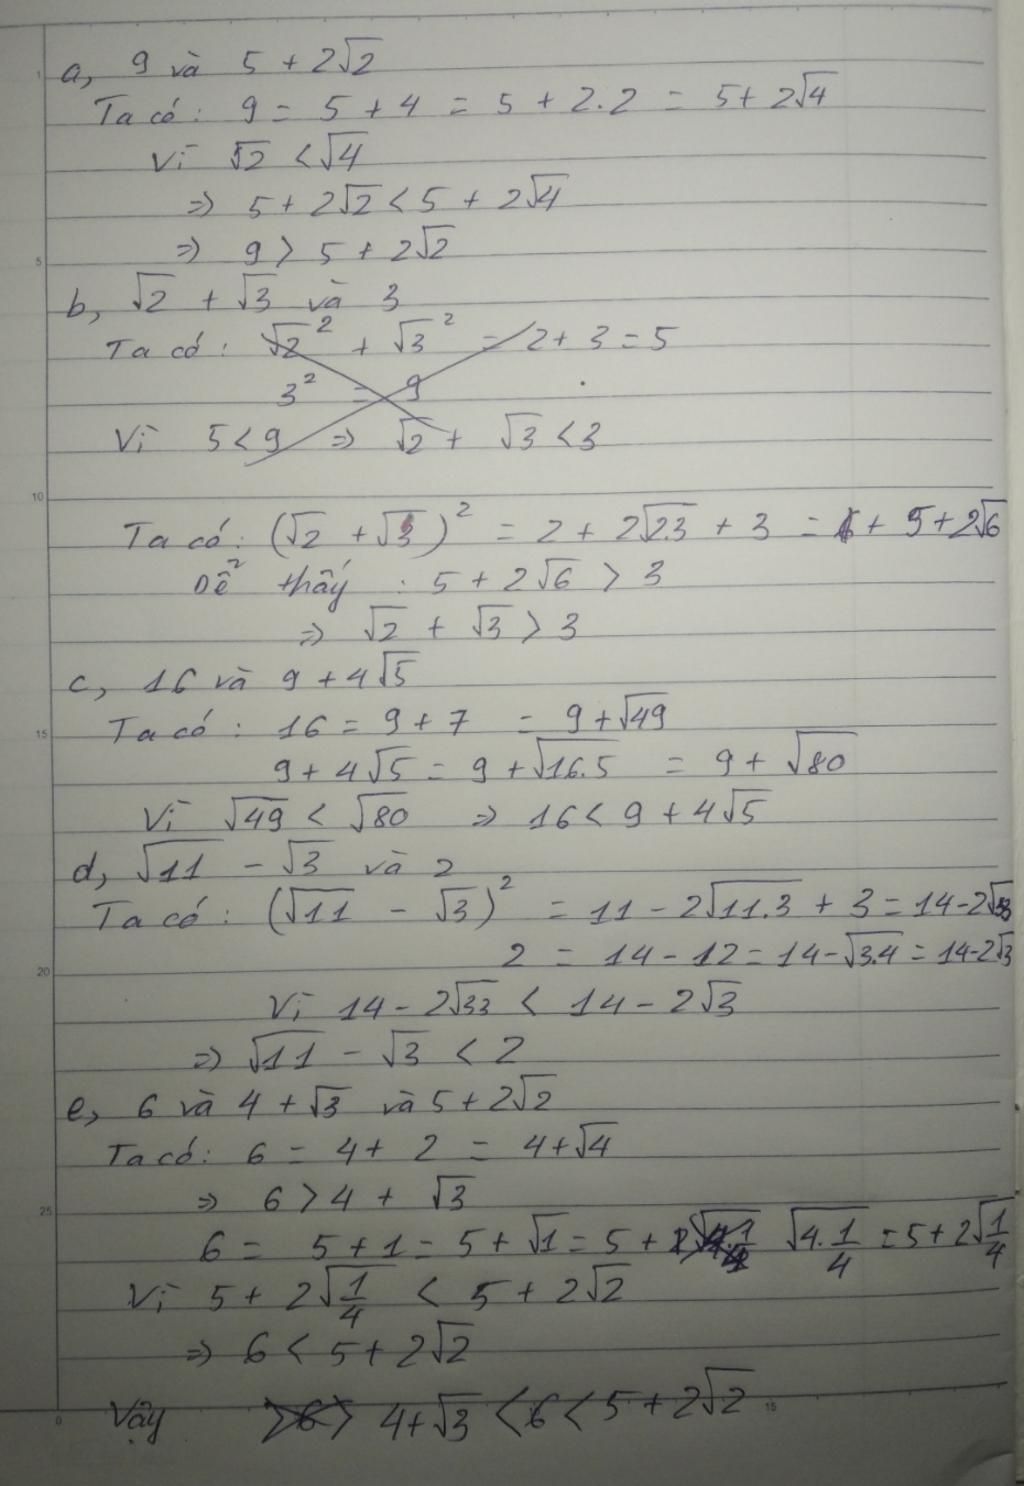 a, 9 và 5 + 2√2
Ta có: 9 = 5 + 4 = 5 + 2.2 = 5 + 2√4
Vì √2 < √4
=> 5 + 2√2 < 5 + 2√4
=> 9 > 5 + 2√2
b, √2 + √3 và 3
Ta có: √2² + √3² = 2 + 3 = 5
3² = 9
Vì 5 < 9 => √2 + √3 < 3
Ta có: (√2 + √3)² = 2 + 2√2.3 + 3 = + 5 + 2√6
Dễ thấy : 5 + 2√6 > 3
=> √2 + √3 > 3
c, 16 và 9 + 4√5
Ta có: 16 = 9 + 7 = 9 + √49
9 + 4√5 = 9 + √16.5 = 9 + √80
Vì √49 < √80 => 16 < 9 + 4√5
d, √11 - √3 và 2
Ta có: (√11 - √3)² = 11 - 2√11.3 + 3 = 14 - 2√33
2 = 14 - 12 = 14 - √3.4 = 14 - 2√3
Vì 14 - 2√33 < 14 - 2√3
=> √11 - √3 < 2
e, 6 và 4 + √3 và 5 + 2√2
Ta có: 6 = 4 + 2 = 4 + √4
=> 6 > 4 + √3
6 = 5 + 1 = 5 + √1 = 5 + √4.1/4 = 5 + 2√1/4
Vì 5 + 2√1/4 < 5 + 2√2
=> 6 < 5 + 2√2
Vậy > 6 > 4 + √3 < 6 < 5 + 2√2